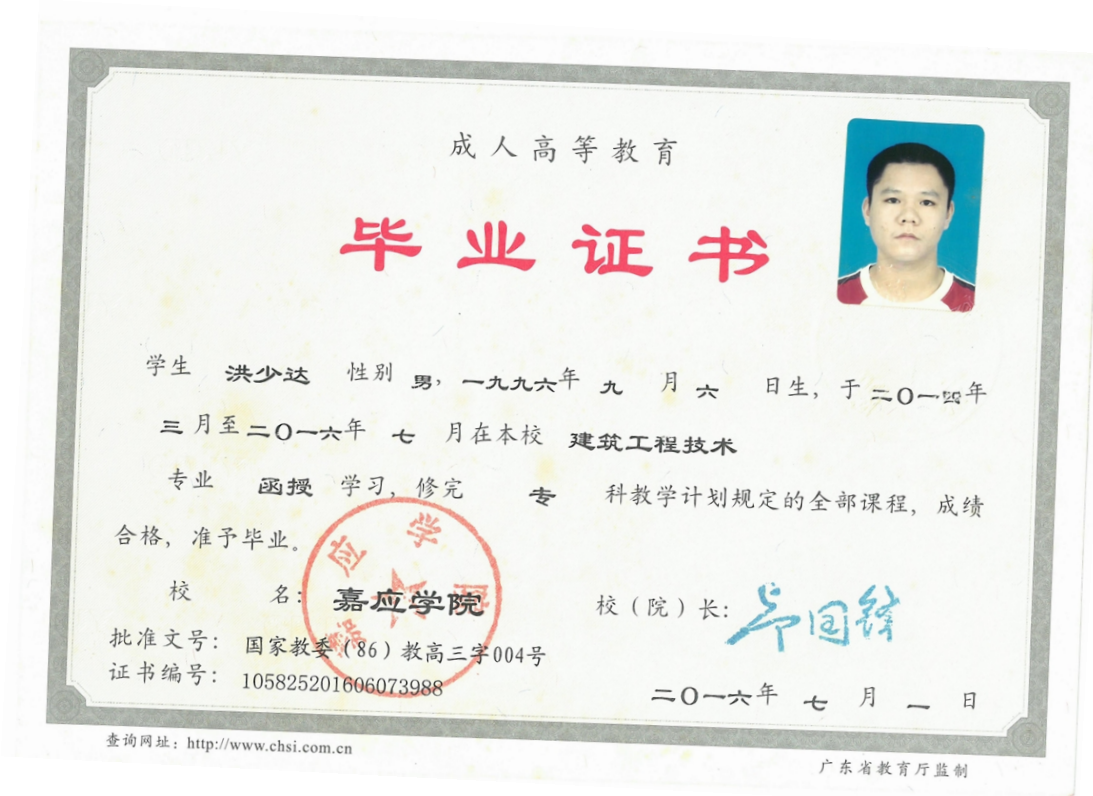 成人高等教育
毕业证书
学生 洪少达 性别 男，一九九六年 九 月 六 日生，于二〇一四年
三月至二〇一六年 七 月在本校 建筑工程技术
专业 函授 学习，修完 专 科教学计划规定的全部课程，成绩
合格，准予毕业。
嘉应学院
校 名：嘉应学院 校（院）长：
批准文号：国家教委（86）教高三字004号
证书编号：105825201606073988
二〇一六年 七 月 一 日
查询网址：http://www.chsi.com.cn
广东省教育厅监制